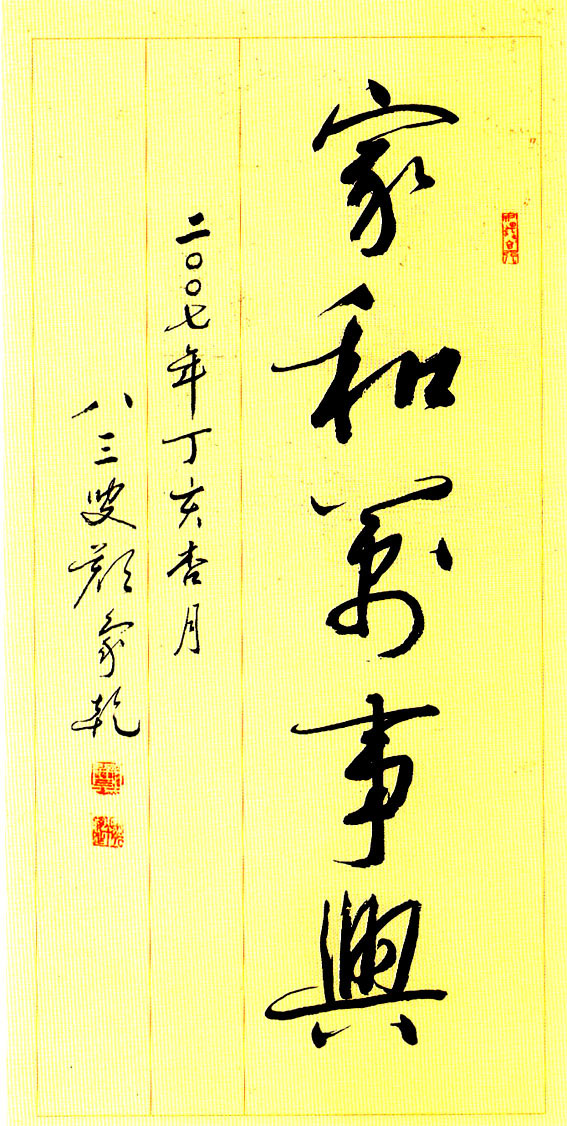 家和萬事興
二〇〇七年丁亥杏月
八三叟顏象乾